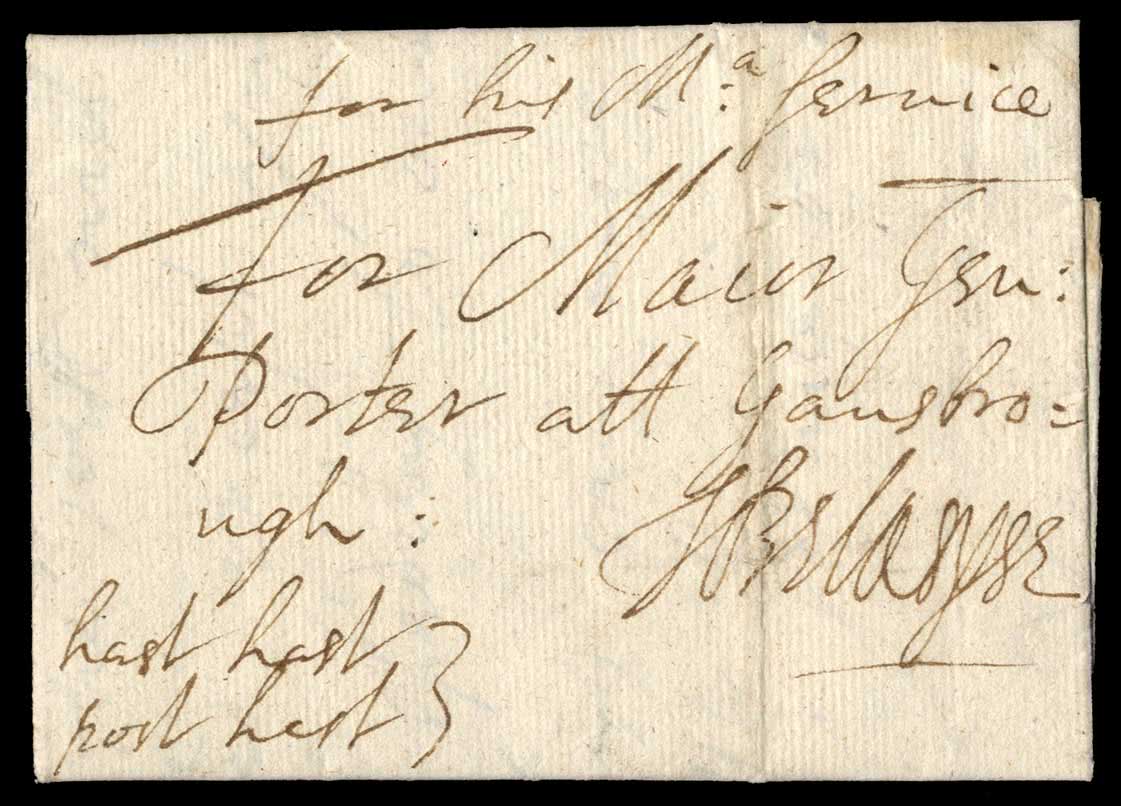 for his Ma: Service
For Maior Gen:
Porter att Gansbro=
ugh:
JBelasyse
hast hast
post hast